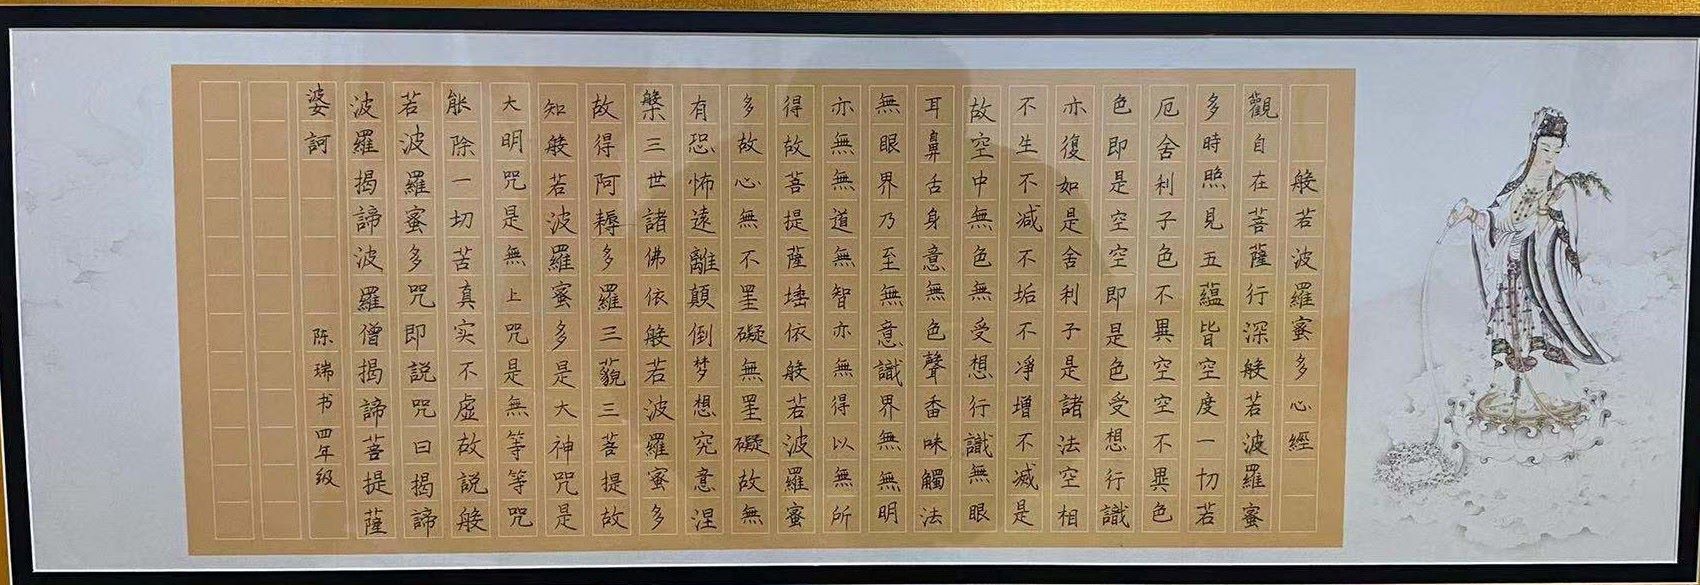 般若波羅蜜多心經
觀自在菩薩行深般若波羅蜜
多時照見五蘊皆空度一切若
厄舍利子色不異空空不異色
色即是空空即是色受想行識
亦復如是舍利子是諸法空相
不生不减不垢不凈增不减是
故空中無色無受想行識無眼
耳鼻舌身意無色聲香味觸法
無眼界乃至無意識界無無明
亦無無道無智亦無得以無所
得故菩提薩埵依般若波羅蜜
多故心無不罣礙無罣礙故無
有恐怖遠離顛倒梦想究意涅
槃三世諸佛依般若波羅蜜多
故得阿耨多羅三藐三菩提故
知般若波羅蜜多是大神咒是
大明咒是無上咒是無等等咒
能除一切苦真实不虚故説般
若波羅蜜多咒即説咒曰揭諦
波羅揭諦波羅僧揭諦菩提薩
婆訶 陈瑞书四年级